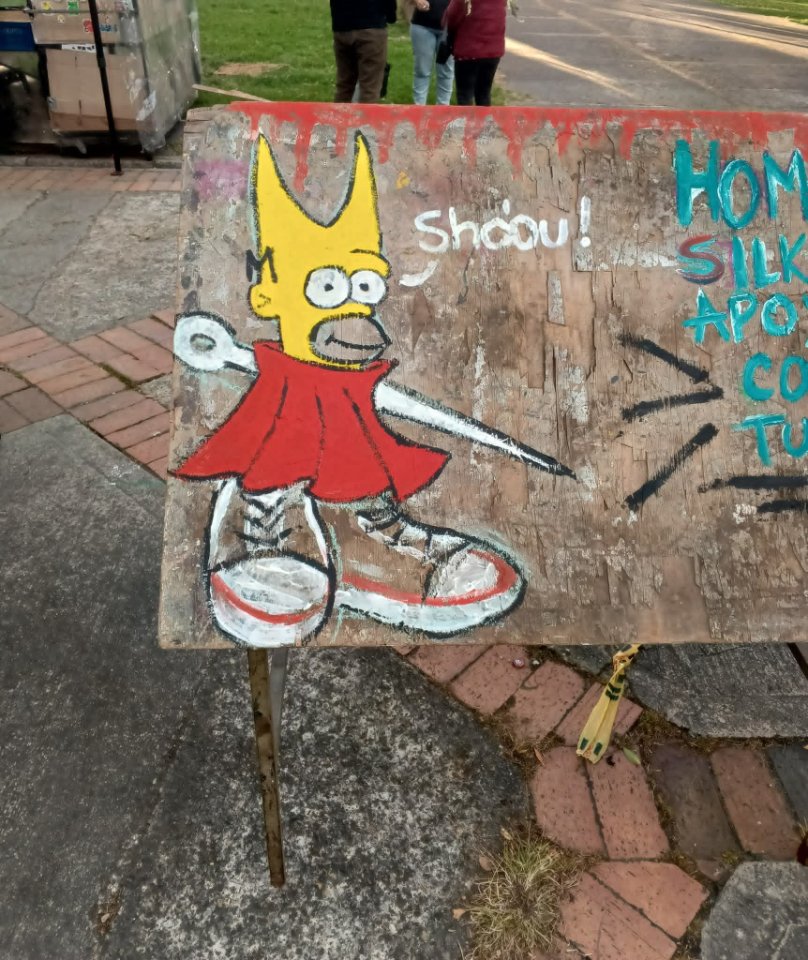 Shóou!
HOM
SILK
APO
CO
TU